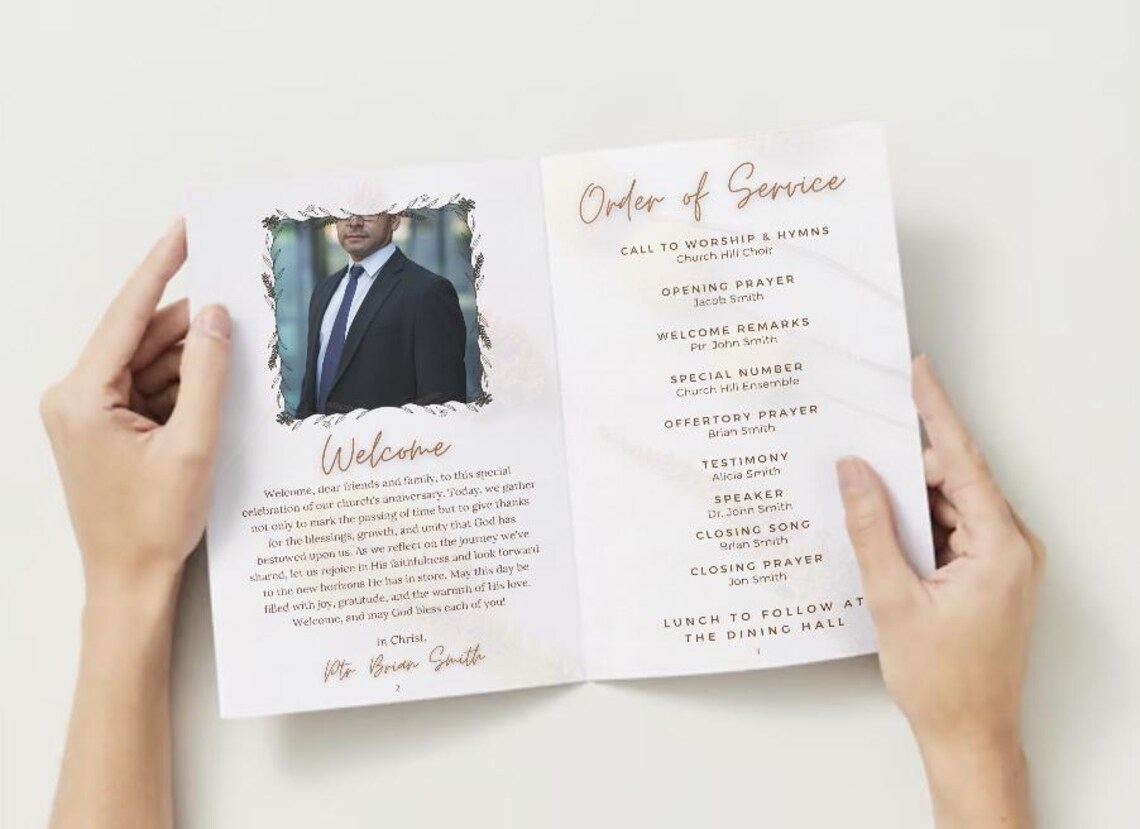 Welcome
Welcome, dear friends and family, to this special
celebration of our church's anniversary. Today, we gather
not only to mark the passing of time but to give thanks
for the blessings, growth, and unity that God has
bestowed upon us. As we reflect on the journey we've
shared, let us rejoice in His faithfulness and look forward
to the new horizons He has in store. May this day be
filled with joy, gratitude, and the warmth of His love.
Welcome, and may God bless each of you!
In Christ,
Ptr Brian Smith
2
Order of Service
CALL TO WORSHIP & HYMNS
Church Hill Choir
OPENING PRAYER
Jacob Smith
WELCOME REMARKS
Ptr. John Smith
SPECIAL NUMBER
Church Hill Ensemble
OFFERTORY PRAYER
Brian Smith
TESTIMONY
Alicia Smith
SPEAKER
Dr. John Smith
CLOSING SONG
Brian Smith
CLOSING PRAYER
Jon Smith
LUNCH TO FOLLOW AT
THE DINING HALL